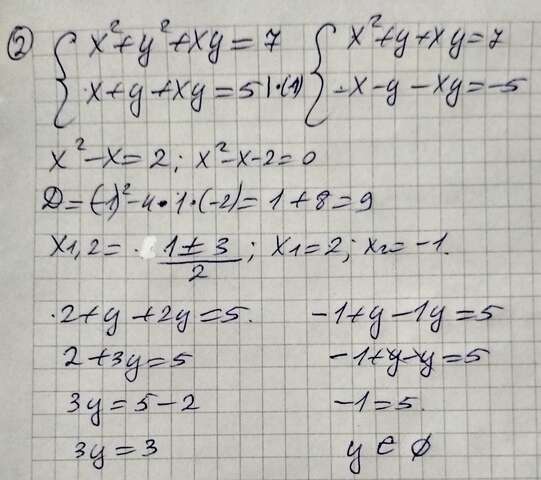 ② { x²+y²+xy=7 { x²+y+xy=7
x+y+xy=5 |·(1) -x-y-xy=-5
x²-x=2; x²-x-2=0
D=(-1)²-4·1·(-2)=1+8=9
x1,2= (1±3)/2; x1=2; x2=-1.
2+y+2y=5. -1+y-1y=5
2+3y=5 -1+y-y=5
3y=5-2 -1=5.
3y=3 y∈∅